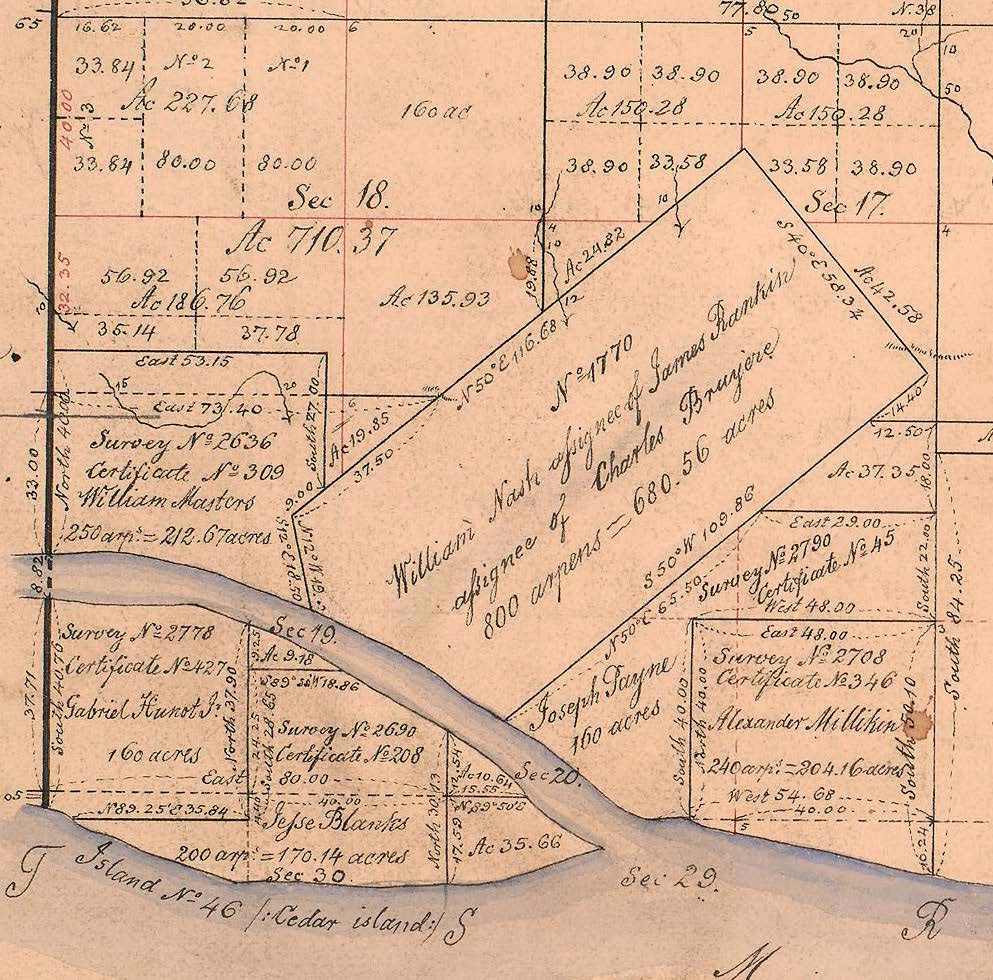 77.80 50 N.38
65 16.62 20.00 20.00 6 5 20 10
33.84 No 2 No 1
38.90 38.90 38.90 38.90 50
Ac 227.68
160 ac
Ac 150.28 Ac 150.28
40.00
No 3
33.84 80.00 80.00
38.90 33.58 33.58 38.90
Sec 18.
Sec 17.
10 10 4
Ac 710.37
56.92 56.92
Ac 186.76
Ac 135.93
32.35
35.14 37.78
10
4
10
19.88
Ac 24.82
12
S 40° E 58.34
Ac 42.58
East 53.15
15 20
East 73.40
6
Survey No 2636
Certificate No 309
William Masters
250 arps = 212.67 acres
33.00
South 27.00
Ac 19.85
37.50
N 50° E 116.68
No 1770
William Nash assignee of James Rankin
assignee of Charles Bruyere
800 arpens = 680.56 acres
14.40
12.50
Ac 37.35
18.00
S 50° W 109.86
N 50° E 65.50
9.00
S 12° E 18.50
8.82
East 29.00
Survey No 2790
Certificate No 45
West 48.00
South 22.00
South 84.25
Joseph Payne
160 acres
East 48.00
Survey No 2708
Certificate No 346
Alexander Millikin
240 arps = 204.16 acres
West 54.68
40.00
South 40.00
North 40.00
South 50.10
5
16.24
Sec 19.
Survey No 2778
Certificate No 427
Gabriel Hunot Jr.
160 acres
37.71
South 40.76
North 37.90
9.25
Ac 9.18
S 89° 35' W 18.86
24.25
South 28.65
Survey No 2690
Certificate No 208
East 80.00
40.00
Jesse Blanks
200 arps = 170.14 acres
Sec 30.
05
N 89.25' E 35.84
North 30.13
12.54
Ac 10.64
15.55
N 89° 50' E
17.59
Ac 35.66
Sec 20.
Sec 29.
T Island No 46 /:Cedar island:/ S R
M